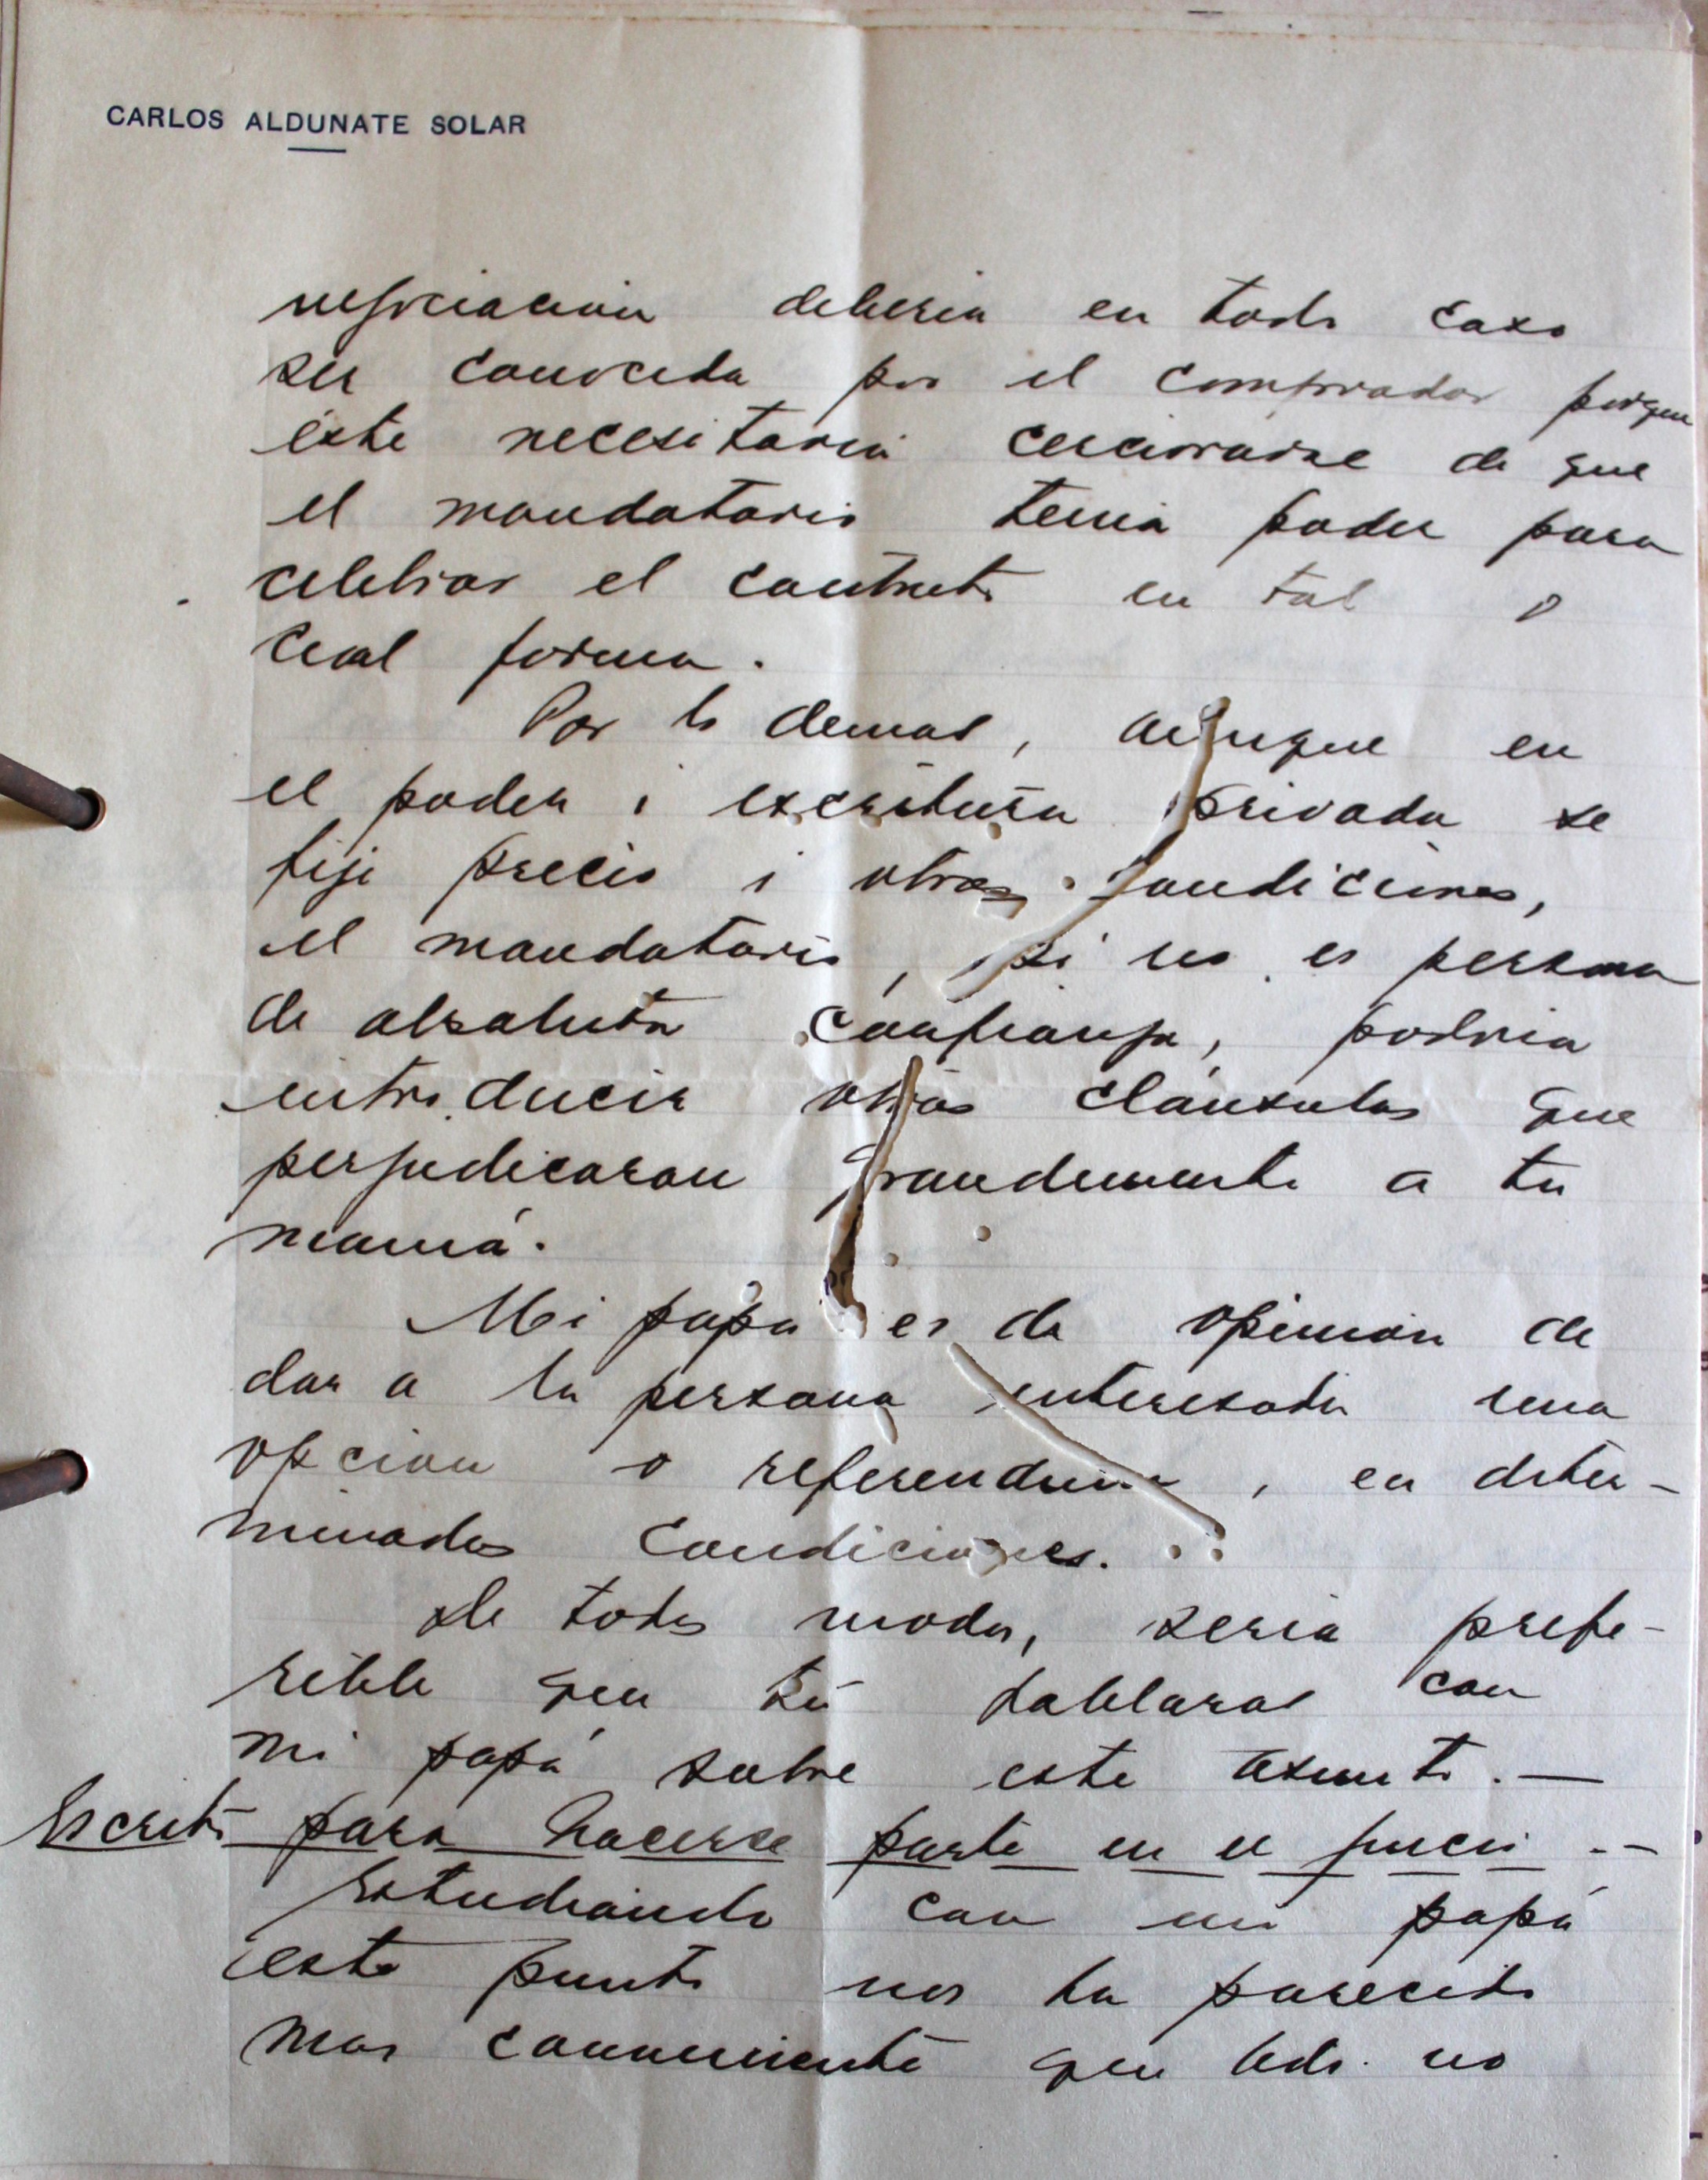 CARLOS ALDUNATE SOLAR
negociacion deberia en todo caso
ser conocida por el comprador porque
éste necesitaria cerciorarse de que
el mandatario tenia poder para
celebrar el contrato en tal o
cual forma.
Por lo demas, aunque en
el poder i escritura privada se
fije precio i otras condiciones,
el mandatario, si no es persona
de absoluta confianza, podria
introducir otras cláusulas que
perjudicaran grandemente a tu
mamá.
Mi papá es de opinion de
dar a la persona interesada una
opcion o referendum, en deter-
minadas condiciones.
De todos modos, seria prefe-
rible que tú hablaras con
mi papá sobre este asunto.—
Escrito para hacerse parte en el juicio.—
Estudiando con mi papá
este punto nos ha parecido
mas conveniente que Uds. no